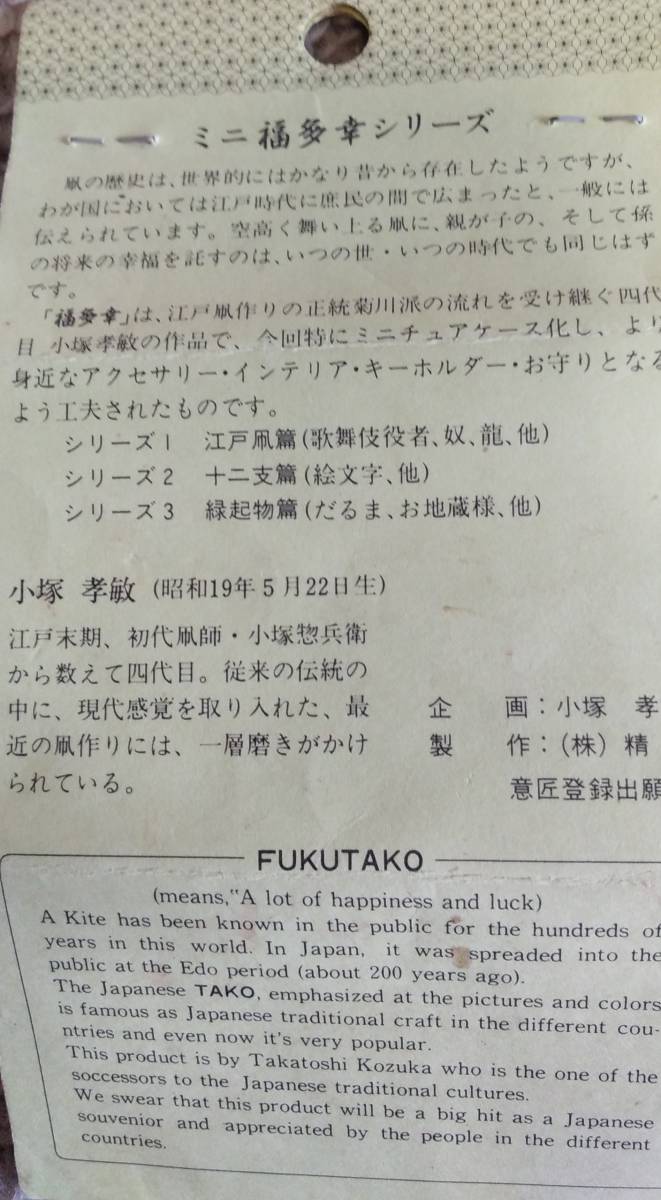 ミニ福多幸シリーズ
凧の歴史は、世界的にはかなり昔から存在したようですが、
わが国においては江戸時代に庶民の間で広まったと、一般には
伝えられています。空高く舞い上る凧に、親が子の、そして孫
の将来の幸福を託すのは、いつの世・いつの時代でも同じはず
です。
「福多幸」は、江戸凧作りの正統菊川派の流れを受け継ぐ四代
目 小塚孝敏の作品で、今回特にミニチュアケース化し、より
身近なアクセサリー・インテリア・キーホルダー・お守りとなる
よう工夫されたものです。
シリーズ1 江戸凧篇(歌舞伎役者、奴、龍、他)
シリーズ2 十二支篇(絵文字、他)
シリーズ3 縁起物篇(だるま、お地蔵様、他)
小塚 孝敏 (昭和19年5月22日生)
江戸末期、初代凧師・小塚惣兵衛
から数えて四代目。従来の伝統の
中に、現代感覚を取り入れた、最
近の凧作りには、一層磨きがかけ
られている。
企 画:小塚 孝
製 作:(株)精
意匠登録出願
FUKUTAKO
(means,"A lot of happiness and luck)
A Kite has been known in the public for the hundreds of
years in this world. In Japan, it was spreaded into the
public at the Edo period (about 200 years ago).
The Japanese TAKO, emphasized at the pictures and colors
is famous as Japanese traditional craft in the different cou-
ntries and even now it's very popular.
This product is by Takatoshi Kozuka who is the one of the
soccessors to the Japanese traditional cultures.
We swear that this product will be a big hit as a Japanese
souvenior and appreciated by the people in the different
countries.